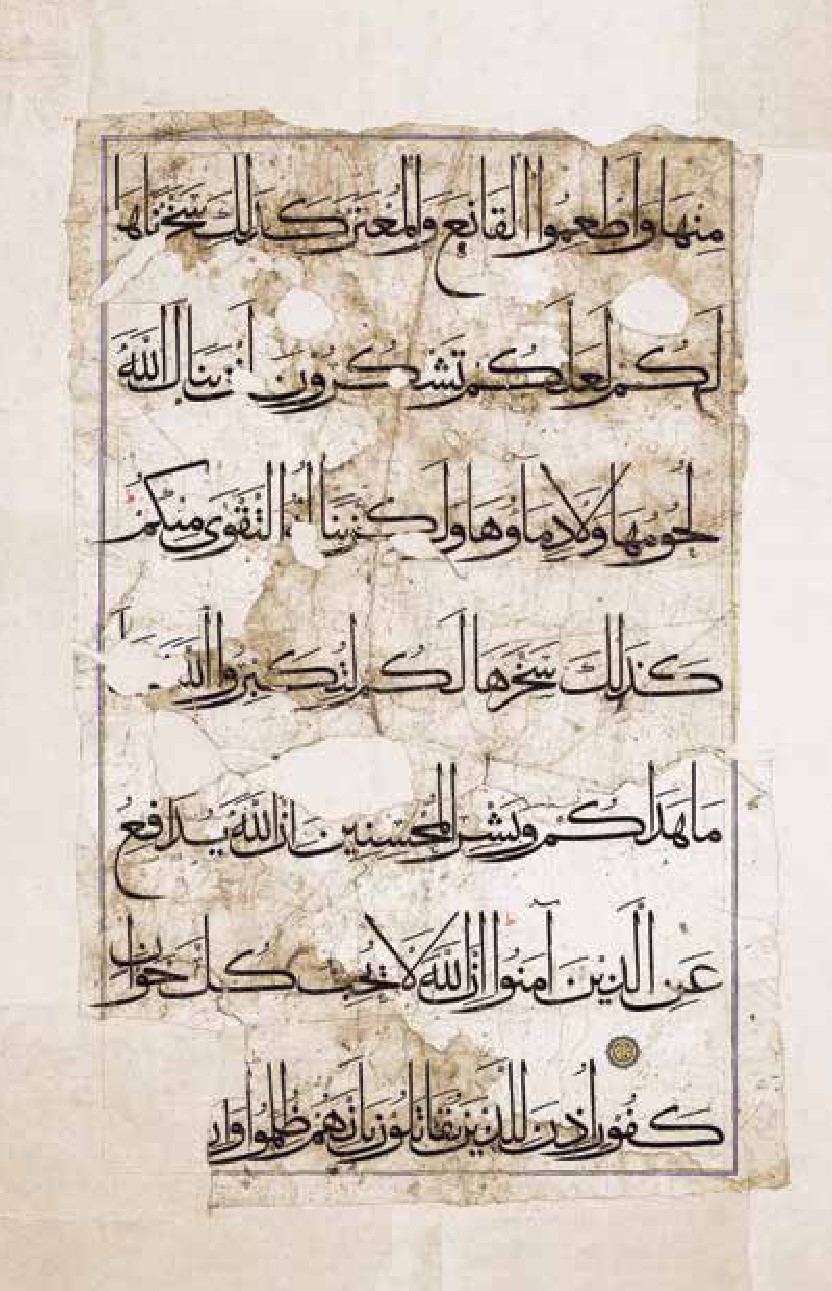 منها وأطعموا القانع والمعتر كذلك سخرناها
لكم لعلكم تشكرون لن ينال الله
لحومها ولا دماؤها ولكن يناله التقوى منكم
كذلك سخرها لكم لتكبروا الله
ما هداكم وبشر المحسنين إن الله يدافع
عن الذين آمنوا إن الله لا يحب كل خوان
كفور أذن للذين يقاتلون بأنهم ظلموا